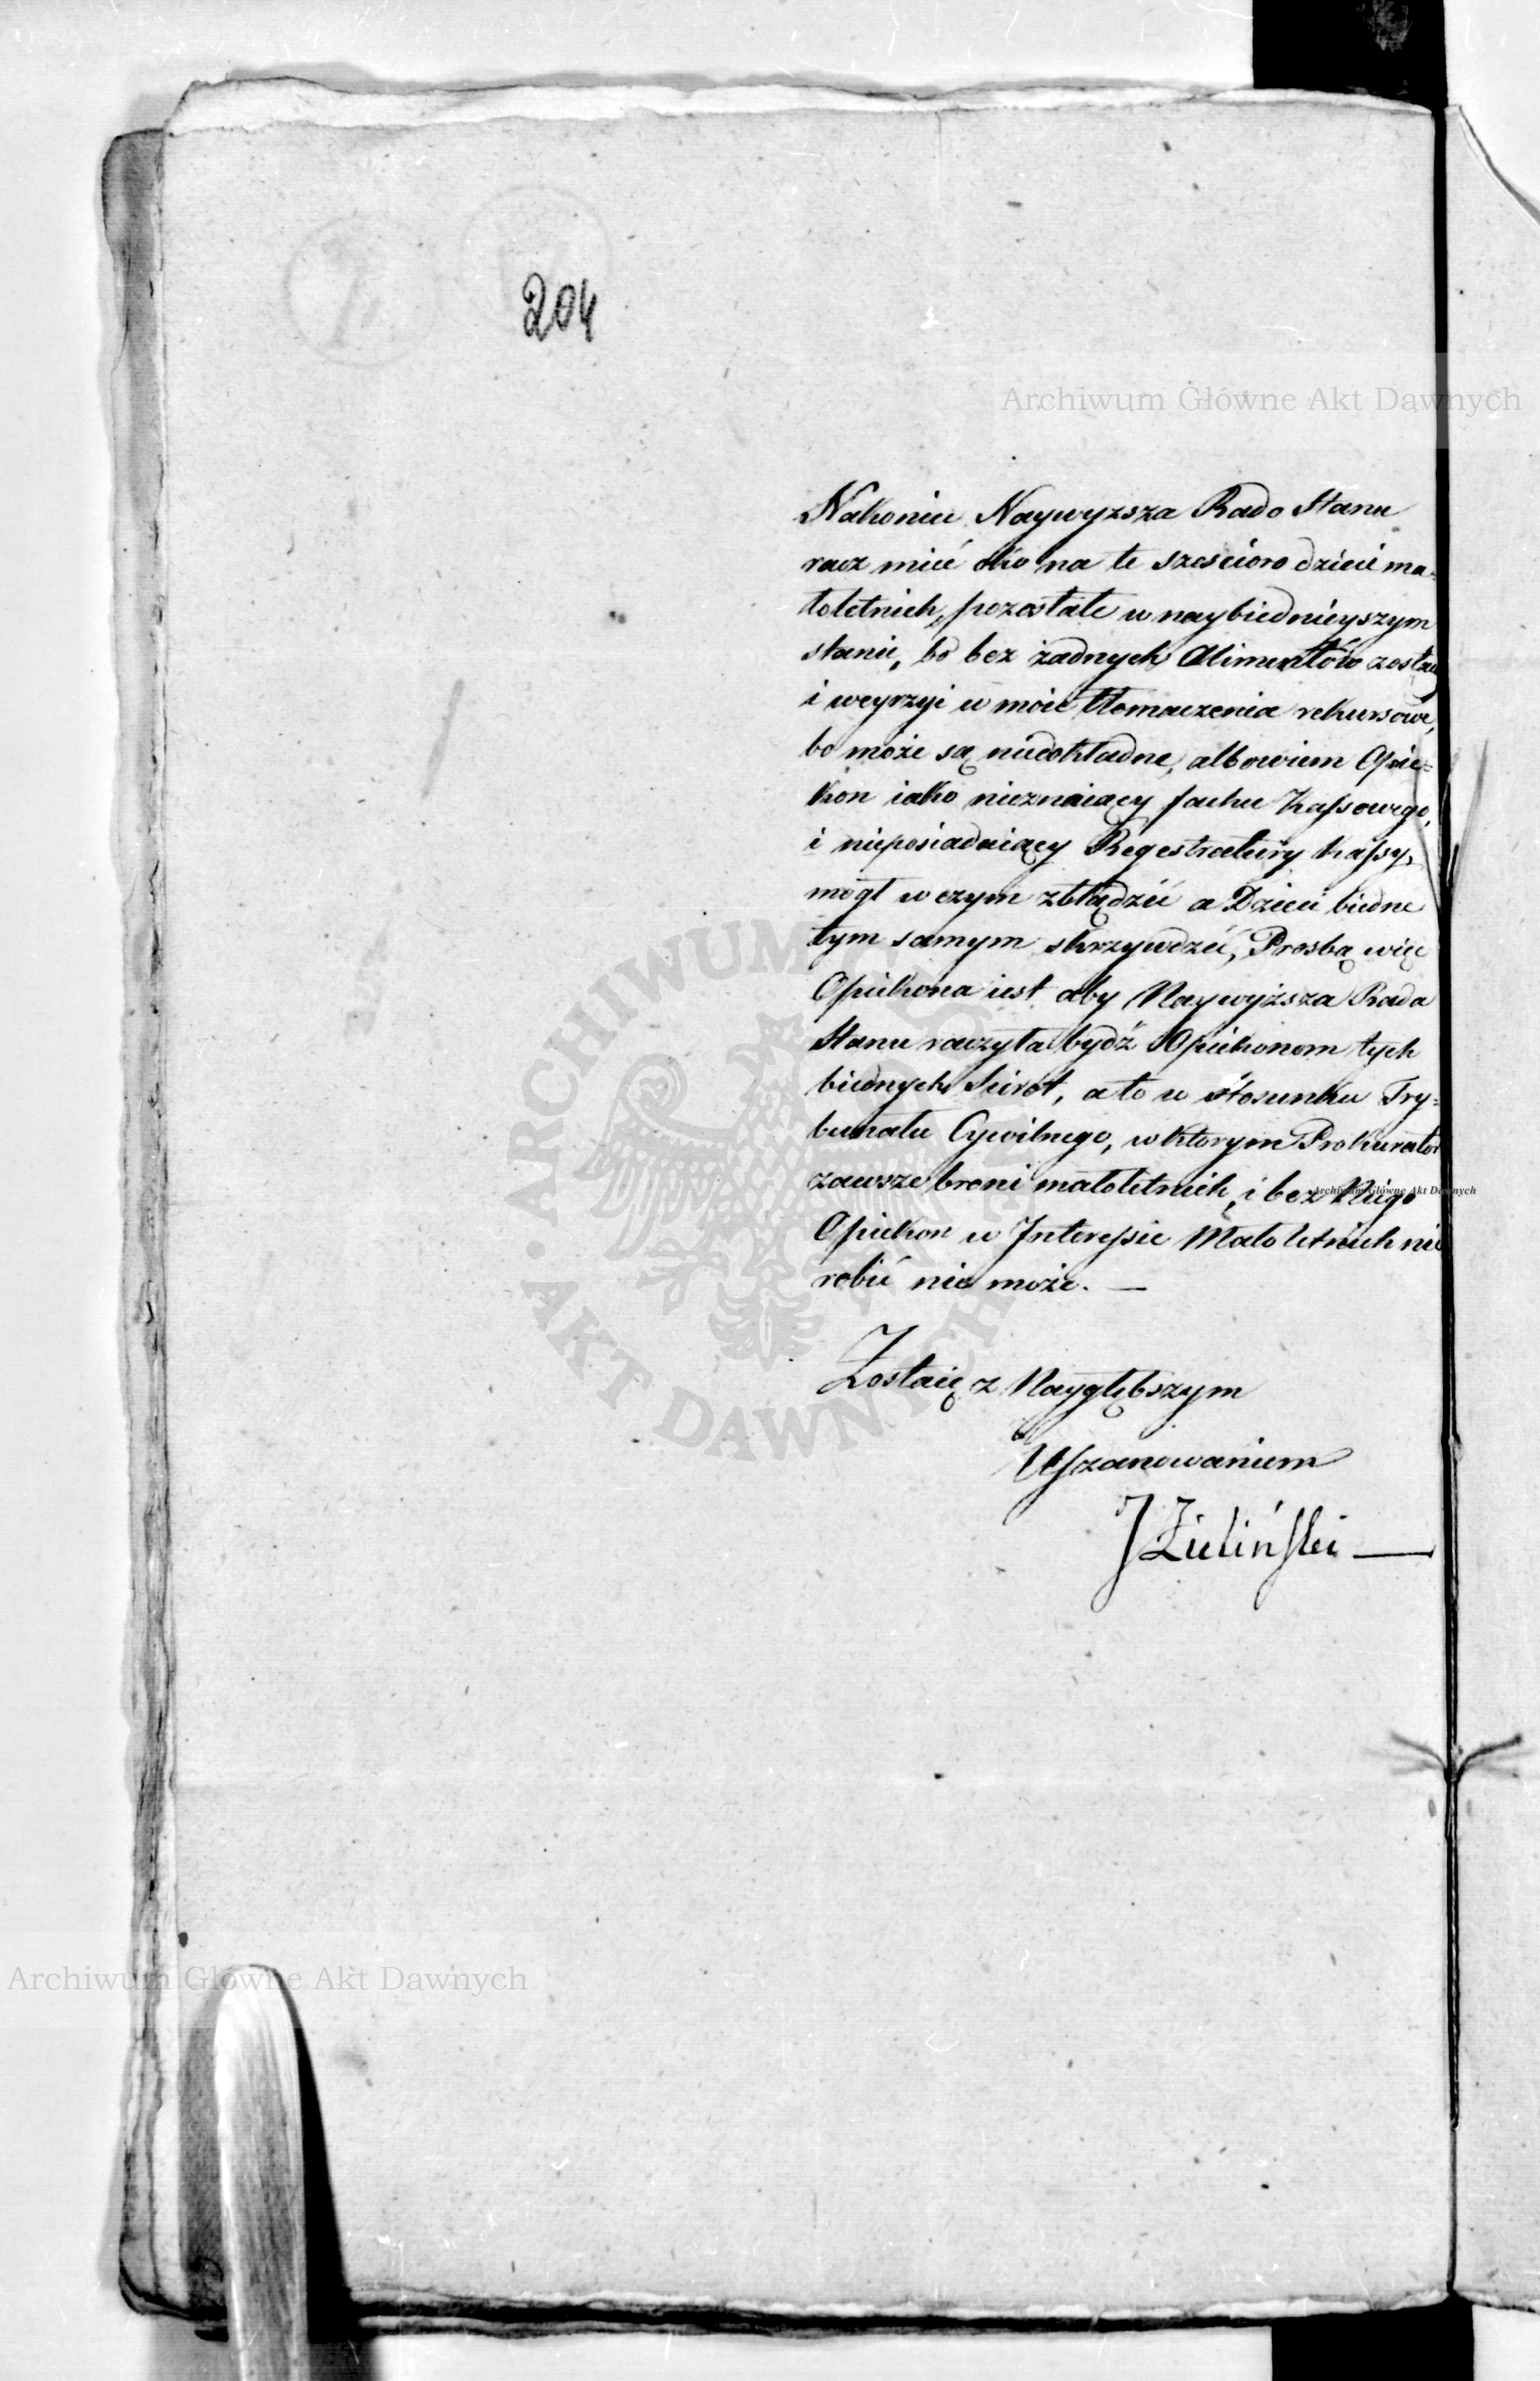 204
Archiwum Główne Akt Dawnych
Nakoniec Naywyzsza Rado Stanu
racz mieć oko na te sześcioro dzieci ma=
łoletnich, pozostałe w naybiednieyszym
stanie, bo bez żadnych Alimentów zostaią
i weyrzyi w moie tłomaczenia rekursowe,
bo może są niedokładne, albowiem Opie=
kon iako nieznaiący fachu Kassowego,
i nieposiadaiący Regestratury Kassy,
mógł w czym zbłądzić a Dzieci biedne
tym samym skrzywdzić, Prosbą więc
Opiekona iest aby Naywyższa Rada
Stanu raczyła bydź Opiekonom tych
biednych Sirot, a to w stosunku Try=
bunału Cywilnego, w ktorym Prokurator
zawsze broni małoletnich, i bez Niego
Archiwum Główne Akt Dawnych
Opiekon w Interessie Małoletnich nic
robić nie może. —
Zostaię z Naygłębszym
Uszanowaniem
J Zieliński —
ARCHIWUM GŁÓWNE AKT DAWNYCH
Archiwum Główne Akt Dawnych